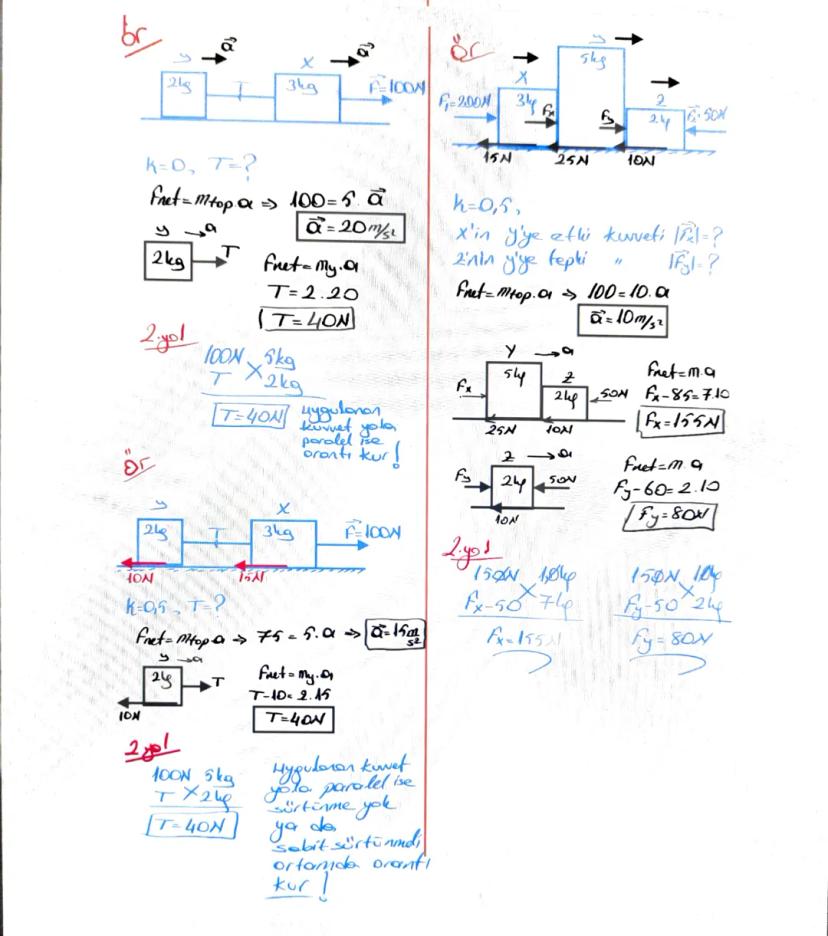 ör
y a⃗ X a⃗
2kg T 3kg F⃗=100N
k=0, T=?
Fnet=mtop.a ⇒ 100=5.a⃗
a⃗=20m/s²
y →a
2kg T
Fnet=my.a
T=2.20
T=40N
2.yol
100N 5kg
T × 2kg
T=40N
uygulanan
kuvvet yola
paralel ise
orantı kur!
ör
y X
2kg T 3kg F⃗=100N
10N 15N
k=0,5, T=?
Fnet=mtop.a → 75=5.a → a⃗=15m/s²
y →a
2kg T
10N
Fnet=my.a
T-10=2.15
T=40N
2.yol
100N 5kg
T × 2kg
T=40N
uygulanan kuvvet
yola paralel ise
sürtünme yok
ya da
sabit sürtünmeli
ortamda orantı
kur!
ör
y
5kg
X Z
F₁=200N 3kg Fx Fy 2kg F₂=50N
15N 25N 10N
k=0,5,
x'in y'ye etki kuvveti |F⃗x|=?
z'nin y'ye tepki " |F⃗y|=?
Fnet=mtop.a → 100=10.a
a⃗=10m/s²
Y →a
5kg Z
Fx 2kg 50N
25N 10N
Fnet=m.a
Fx-85=7.10
Fx=155N
Z →a
Fy 2kg 50N
10N
Fnet=m.a
Fy-60=2.10
Fy=80N
2.yol
150N 10kg
Fx-50 × 7kg
Fx=155N
150N 10kg
Fy-50 × 2kg
Fy=80N